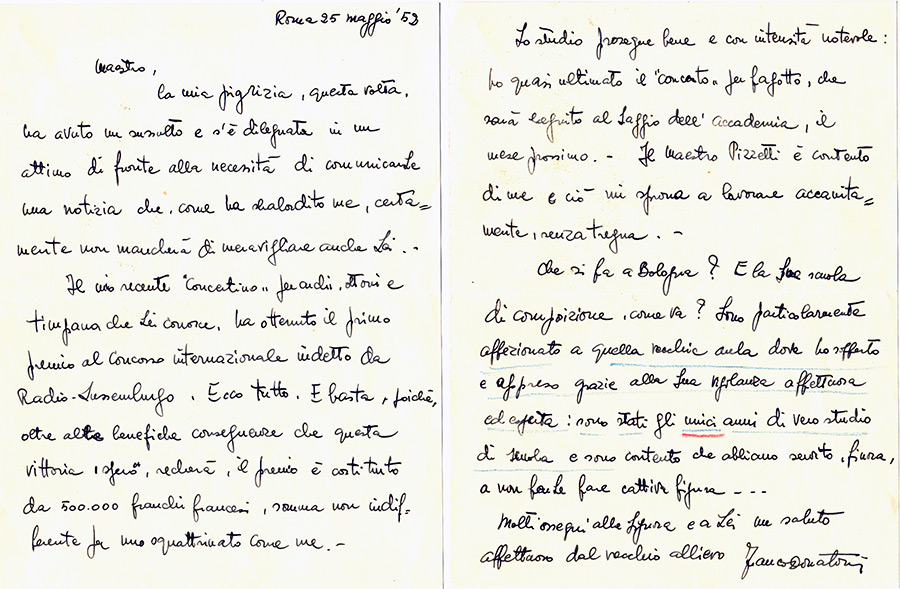 Roma 25 maggio '52
Maestro,
la mia pigrizia, questa volta,
ha avuto un sussulto e s'è dileguata in un
attimo di fronte alla necessità di comunicarLe
una notizia che, come ha sbalordito me, certa=
mente non mancherà di meravigliare anche Lei. -
Il mio recente "Concertino" per archi, ottoni e
timpano che Lei conosce, ha ottenuto il primo
premio al Concorso internazionale indetto da
Radio-Lussemburgo. Ecco tutto. E basta, poiché,
oltre alle benefiche conseguenze che questa
vittoria, spero, recherà, il premio è costituito
da 500.000 franchi francesi, somma non indif-
ferente per uno squattrinato come me. -
Lo studio prosegue bene e con intensità notevole:
ho quasi ultimato il "concerto" per fagotto, che
sarà eseguito al Saggio dell'accademia, il
mese prossimo. - Il Maestro Pizzetti è contento
di me e ciò mi sprona a lavorare accanita=
mente, senza tregua. -
Che si fa a Bologna? E la Sua scuola
di composizione, come va? Sono particolarmente
affezionato a quella vecchia aula dove ho sofferto
e appreso grazie alla Sua vigilanza affettuosa
ed esperta: sono stati gli unici anni di vero studio
di scuola e sono contento che abbiano servito, finora,
a non farLe fare cattiva figura - - -
Molti ossequi alla Signora e a Lei un saluto
affettuoso dal vecchio allievo Franco Donatoni